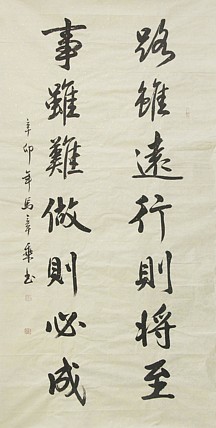 路雖遠行則将至
事雖難做則必成
辛卯年馬彥乘书